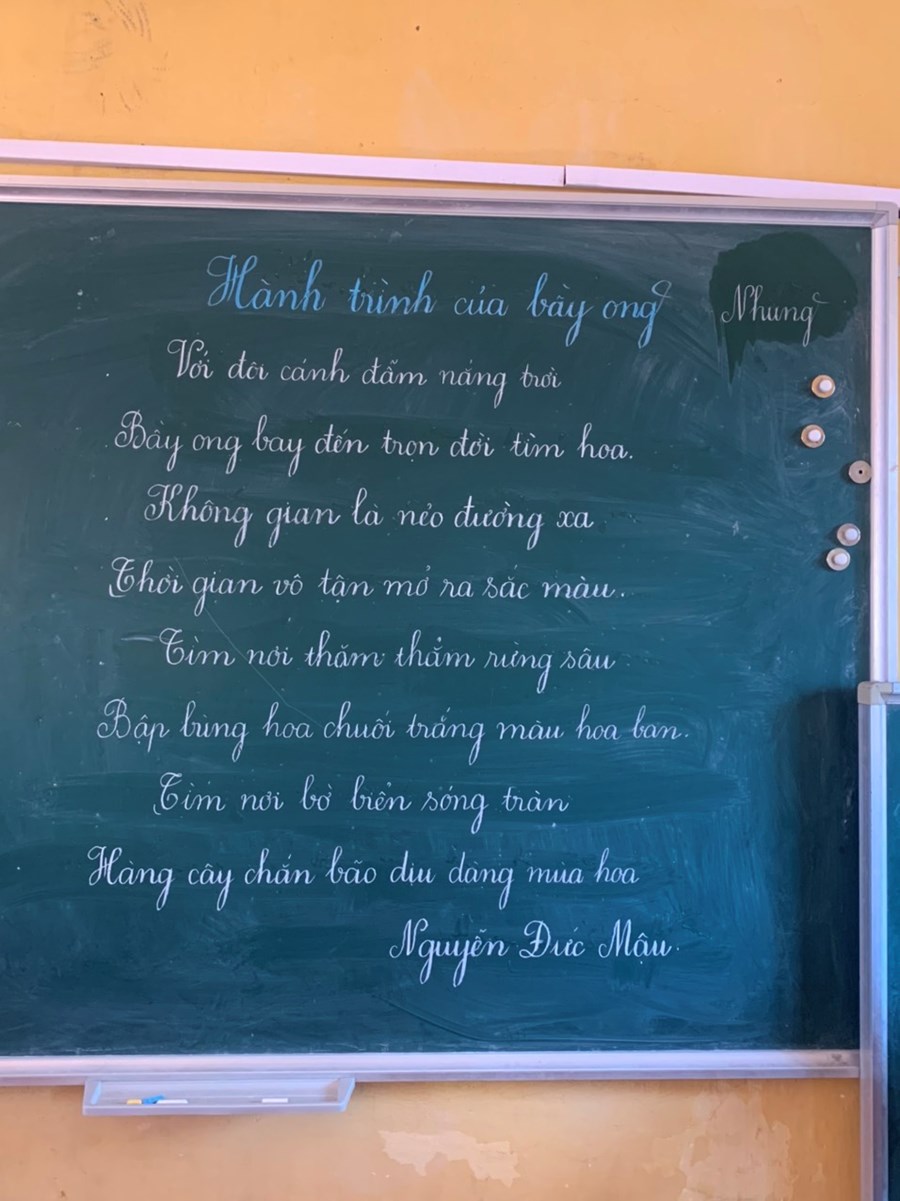 Hành trình của bày ong
Nhung
Với đôi cánh đẫm nắng trời
Bày ong bay đến trọn đời tìm hoa.
Không gian là nẻo đường xa
Thời gian vô tận mở ra sắc màu.
Tìm nơi thăm thẳm rừng sâu
Bập bùng hoa chuối trắng màu hoa ban.
Tìm nơi bờ biển sóng tràn
Hàng cây chắn bão dịu dàng mùa hoa
Nguyễn Đức Mậu.